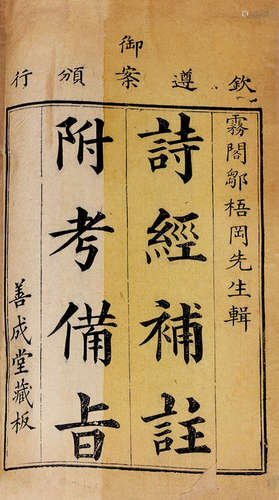 欽遵御案頒行
霧閣鄒梧岡先生輯
詩經補註
附考備旨
善成堂藏板